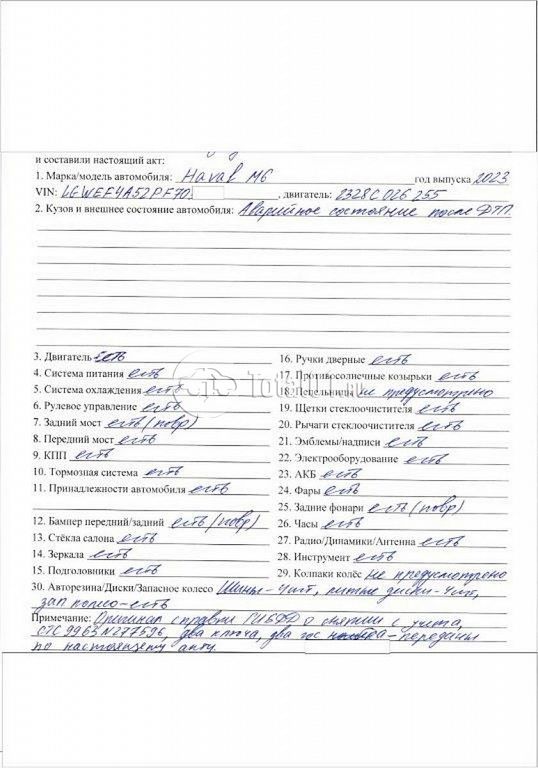 и составили настоящий акт:
1. Марка/модель автомобиля: Haval M6 год выпуска 2023
VIN: LGWEF4A52PF70 , двигатель: 2328C026255
2. Кузов и внешнее состояние автомобиля: Аварийное состояние после ДТП.
3. Двигатель есть
4. Система питания есть
5. Система охлаждения есть
6. Рулевое управление есть
7. Задний мост есть (повр)
8. Передний мост есть
9. КПП есть
10. Тормозная система есть
11. Принадлежности автомобиля есть
12. Бампер передний/задний есть (повр)
13. Стёкла салона есть
14. Зеркала есть
15. Подголовники есть
16. Ручки дверные есть
17. Противосолнечные козырьки есть
18. Пепельницы не предусмотрено
19. Щетки стеклоочистителя есть
20. Рычаги стеклоочистителя есть
21. Эмблемы/надписи есть
22. Электрооборудование есть
23. АКБ есть
24. Фары есть
25. Задние фонари есть (повр)
26. Часы есть
27. Радио/Динамики/Антенна есть
28. Инструмент есть
29. Колпаки колёс не предусмотрено
30. Авторезина/Диски/Запасное колесо Шины-4шт, литые диски-4шт,
зап колесо-есть
Примечание: Оригинал справки ГИБДД о снятии с учета,
СТС 9963 N277596, два ключа, два гос - переданы
по настоящему акту.
Total01.ru